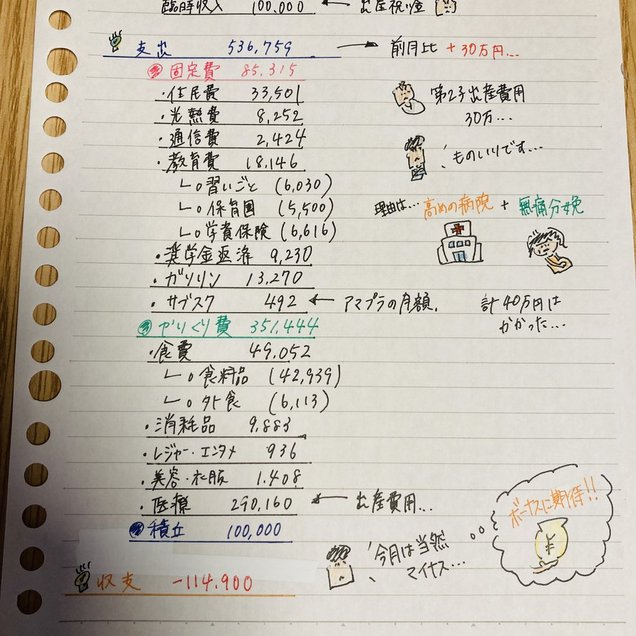 臨時収入 100,000 ← 出産祝い金
支出 536,759 → 前月比 +30万円…
固定費 85,315
・住居費 33,501
・光熱費 8,252
・通信費 2,424
・教育費 18,146
└○習いごと (6,030)
└○保育園 (5,500)
└○学資保険 (6,616)
・奨学金返済 9,230
・ガソリン 13,270
・サブスク 492 ← アマプラの月額。
第2子出産費用
30万…
ものいりです…
理由は… 高めの病院 + 無痛分娩
計40万円は
かかった…
やりくり費 351,444
・食費 49,052
└○食料品 (42,939)
└○外食 (6,113)
・消耗品 9,883
・レジャー・エンタメ 936
・美容・衣服 1,408
・医療 290,160 ← 出産費用…
積立 100,000
収支 -114,900
今月は当然
マイナス…
ボーナスに期待!!
¥